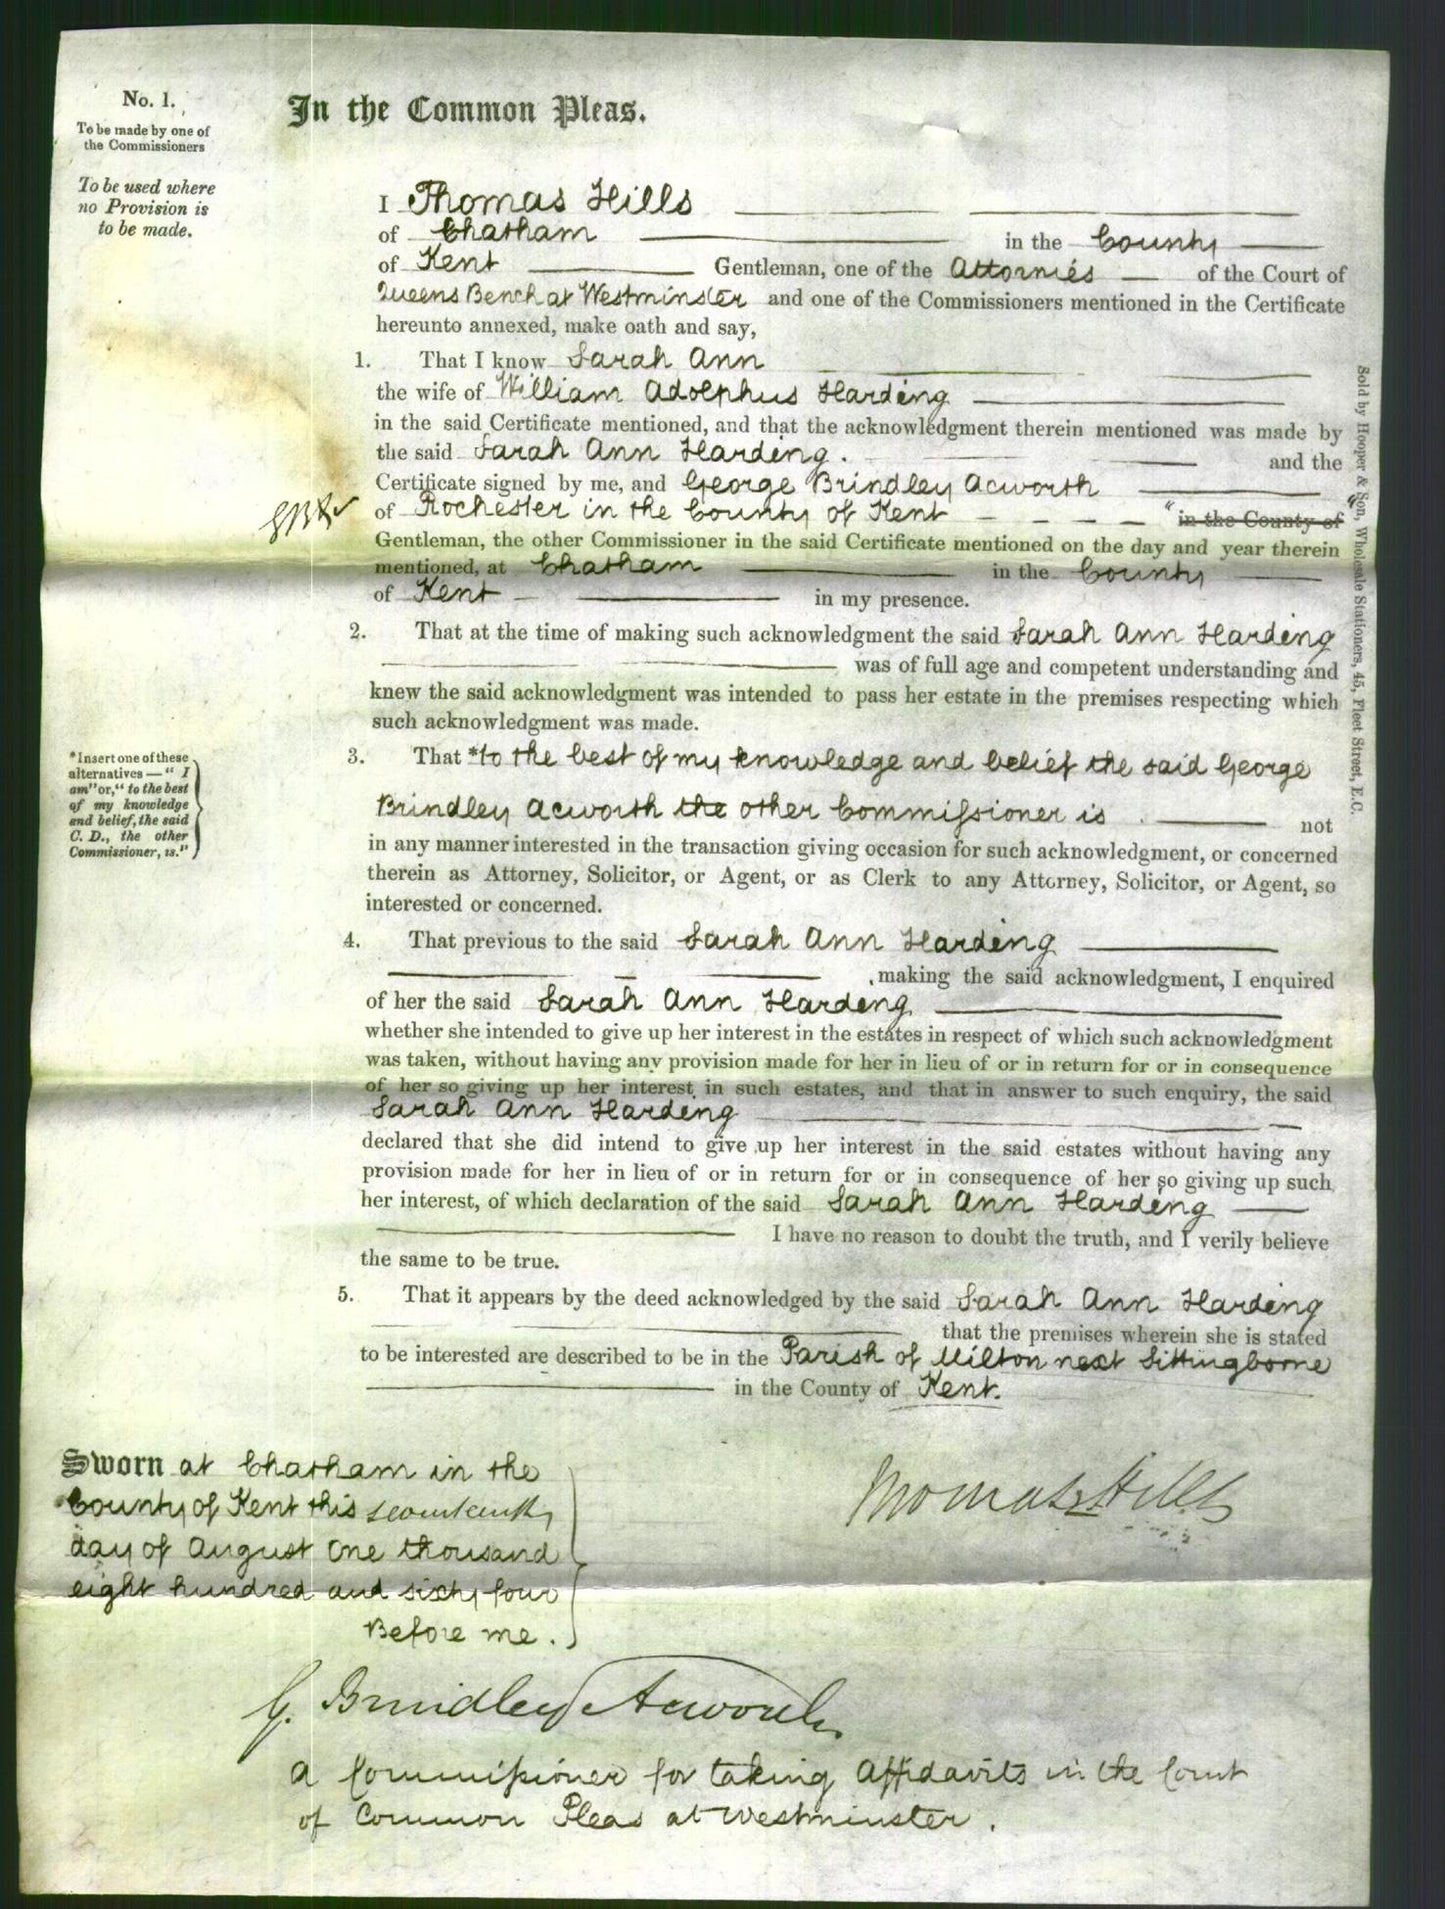 No. 1.
To be made by one of
the Commissioners
To be used where
no Provision is
to be made.
In the Common Pleas.
I Thomas Hills
of Chatham in the County
of Kent Gentleman, one of the Attornies of the Court of
Queens Bench at Westminster and one of the Commissioners mentioned in the Certificate
hereunto annexed, make oath and say,
1. That I know Sarah Ann
the wife of William Adolphus Harding
in the said Certificate mentioned, and that the acknowledgment therein mentioned was made by
the said Sarah Ann Harding. and the
Certificate signed by me, and George Brindley Acworth
of Rochester in the County of Kent "in the County of"
Gentleman, the other Commissioner in the said Certificate mentioned on the day and year therein
mentioned, at Chatham in the County
of Kent in my presence.
2. That at the time of making such acknowledgment the said Sarah Ann Harding
was of full age and competent understanding and
knew the said acknowledgment was intended to pass her estate in the premises respecting which
such acknowledgment was made.
*Insert one of these
alternatives—"I
am" or, "to the best
of my knowledge
and belief, the said
C. D., the other
Commissioner, is."
3. That *to the best of my knowledge and belief the said George
Brindley Acworth the other Commissioner is not
in any manner interested in the transaction giving occasion for such acknowledgment, or concerned
therein as Attorney, Solicitor, or Agent, or as Clerk to any Attorney, Solicitor, or Agent, so
interested or concerned.
4. That previous to the said Sarah Ann Harding
making the said acknowledgment, I enquired
of her the said Sarah Ann Harding
whether she intended to give up her interest in the estates in respect of which such acknowledgment
was taken, without having any provision made for her in lieu of or in return for or in consequence
of her so giving up her interest in such estates, and that in answer to such enquiry, the said
Sarah Ann Harding
declared that she did intend to give up her interest in the said estates without having any
provision made for her in lieu of or in return for or in consequence of her so giving up such
her interest, of which declaration of the said Sarah Ann Harding
I have no reason to doubt the truth, and I verily believe
the same to be true.
5. That it appears by the deed acknowledged by the said Sarah Ann Harding
that the premises wherein she is stated
to be interested are described to be in the Parish of Milton next Sittingborne
in the County of Kent.
Sworn at Chatham in the
County of Kent this seventeenth
day of August One thousand
eight hundred and sixty four
Before me.
Thomas Hills
G. Brindley Acworth
a Commissioner for taking Affidavits in the Court
of Common Pleas at Westminster.
Sold by Hooper & Son, Wholesale Stationers, 45, Fleet Street, E.C.